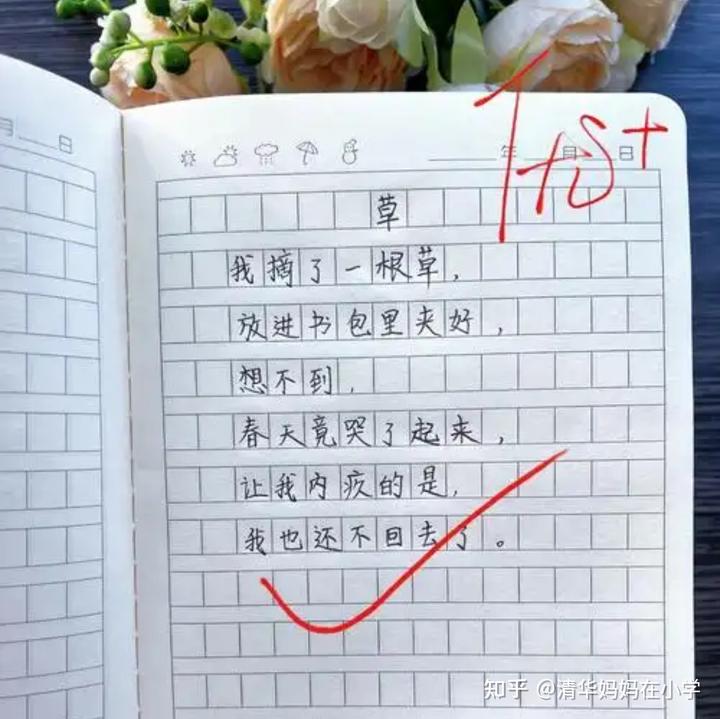 月 日
年 月 日
优+
草
我摘了一根草，
放进书包里夹好，
想不到，
春天竟哭了起来，
让我内疚的是，
我也还不回去了。
知乎 @清华妈妈在小学